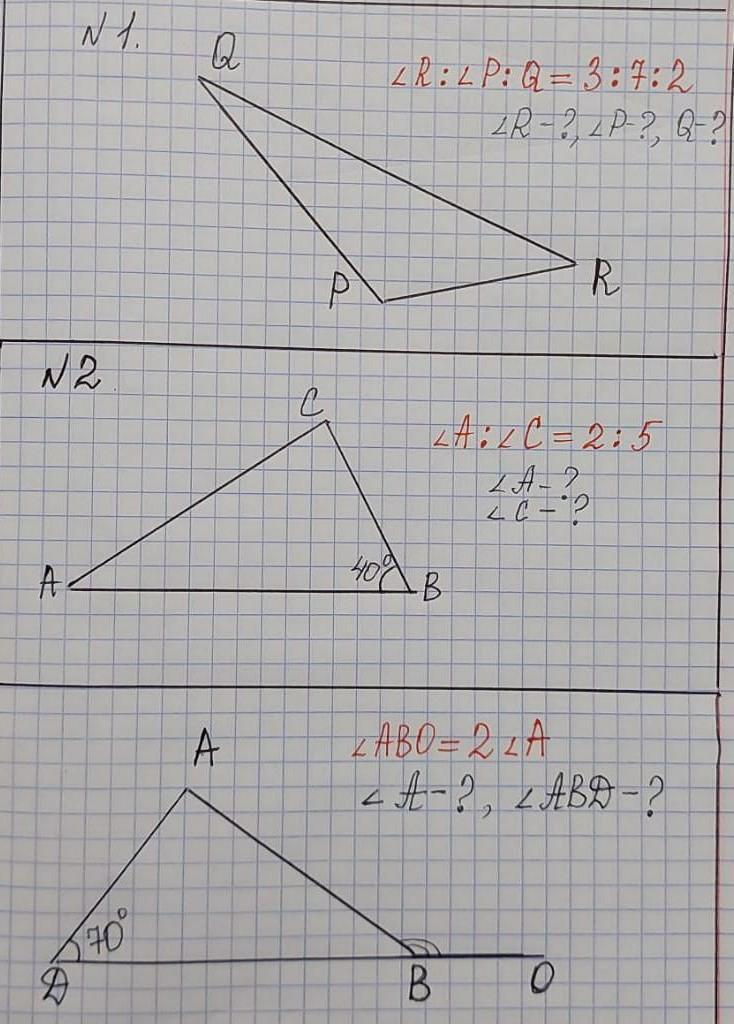 N 1.
Q
∠R:∠P:Q = 3:7:2
∠R-?, ∠P-?, Q-?
P
R
N2
C
∠A:∠C = 2:5
∠A-?
∠C-?
40°
A
B
A
∠ABO = 2∠A
∠A-?, ∠ABD-?
70°
D
B
O